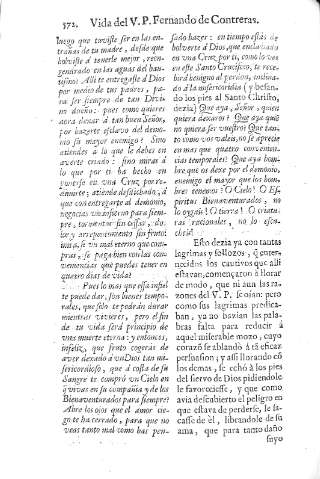 372. Vida del V. P. Fernando de Contreras.
luego que tuviste ser en las en-
trañas de tu madre, desde que
bolviste à tenerle mejor, reen-
gendrado en las aguas del bau-
tismo? Alli te entregaste à Dios
por medio de tus padres, pa-
ra ser siempre de tan Divi-
no dueño: pues como quieres
aora dexar à tan buen Señor,
por hazerte esclavo del demo-
nio su mayor enemigo? Sino
atiendes à lo que le debes en
averte criado: sino miras à
lo que por ti ha hecho en
ponerse en una Cruz por re-
dimirte; atiende desdichado, à
que con entregarte al demonio,
negocias un infierno para siem-
pre, tormentos sin cessar, do-
lor, y arrepentimiento sin fruto:
mira, se un mal eterno que com-
pras, se paga bien con las con-
veniencias que puedes tener en
quatro dias de vida?
Pues lo mas que essa infiel
te puede dar, son bienes tempo-
rales, que solo te podràn durar
mientras vivieres, pero el fin
de tu vida serà principio de
una muerte eterna: y entonces,
infeliz, que fruto cogeràs de
aver dexado à un Dios tan mi-
sericordioso, que à costa de su
Sangre te comprò un Cielo en
q vivas en su compañia, y de los
Bienaventurados para siempre?
Abre los ojos que el amor cie-
go te ha cerrado, para que no
veas tanto mal como has pen-
sado hazer: en tiempo estàs de
bolverte à Dios, que enclavado
en una Cruz por ti, como lo ves
en este Santo Crucifixo, te reci-
birà benigno al perdon, inclina-
do à la misericordia ( y besan-
do los pies al Santo Christo,
dezia) Que aya, Señor, quien
quiera dexaros? Que aya quie
no quiera ser vuestro? Que tan-
to como vos valeis, no se aprecie
en mas que quatro convenien-
cias temporales? Que aya hom-
bre que os dexe por el demonio,
enemigo el mayor que los hom-
bres tenemos? O Cielo! O Es-
piritus Bienaventurados, no
lo oygais! O tierra! O criatu-
ras racionales, no lo escu-
cheis!
Esto dezia ya con tantas
lagrimas y sollozos, q enter-
necidos los cautivos que alli
estavan, començaron à llorar
de modo, que ni aun las ra-
zones del V. P. se oìan: pero
como sus lagrimas predica-
ban, ya no havian las pala-
bras falta para reducir à
aquel miserable mozo, cuyo
corazõ se ablandò à tã eficaz
persuasion; y assi llorando cõ
los demas, se echò à los pies
del siervo de Dios pidiendole
le favoreciesse, y que como
avia descubierto el peligro en
que estava de perderse, le sa-
casse de èl, librandole de su
ama, que para tanto daño
suyo